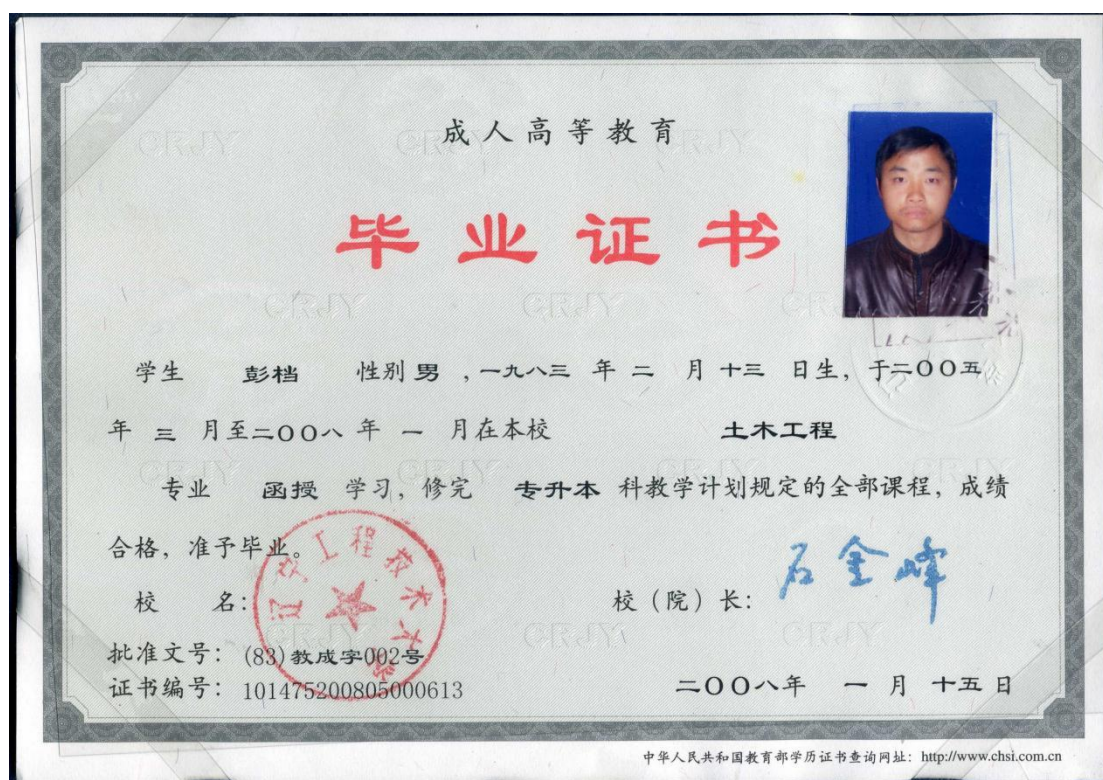 成人高等教育
毕业证书
学生 彭档 性别 男 ,一九八三 年 二 月 十三 日生, 于二〇〇五
年 三 月至二〇〇八 年 一 月在本校 土木工程
专业 函授 学习, 修完 专升本 科教学计划规定的全部课程, 成绩
合格, 准予毕业。
辽宁工程技术大学
校 名: 校（院）长: 石金峰
批准文号: (83)教成字002号
证书编号: 101475200805000613 二〇〇八年 一 月 十五 日
中华人民共和国教育部学历证书查询网址: http://www.chsi.com.cn